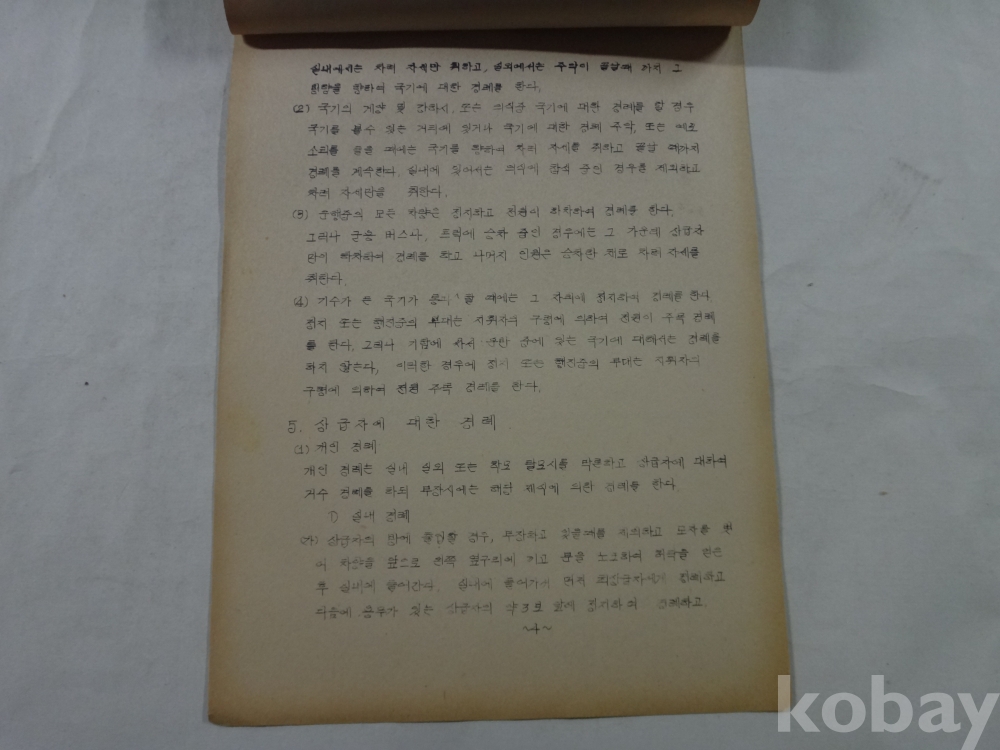 실내에서는 차려 자세만 취하고, 실외에서는 주악이 들릴때 하차 그
방향을 향하여 국기에 대한 경례를 한다.
(2) 국기의 게양 및 강하시, 또는 의식중 국기에 대한 경례를 할 경우
국기를 볼수 있는 거리에 있거나 국기에 대한 경례 주악, 또는 예포
소리를 들을 때에는 국기를 향하여 차려 자세를 취하고 끝날 때까지
경례를 계속한다. 실내에 있어서는 의식에 참석 중인 경우를 제외하고
차려 자세만을 취한다.
(3) 운행중의 모든 차량은 정지하고 전원이 하차하여 경례를 한다.
그러나 군용 버스나, 트럭에 승차 중인 경우에는 그 가운데 상급자
만이 하차하여 경례를 하고 나머지 인원은 승차한 채로 차려 자세를
취한다.
(4) 기수가 든 국기가 때에는 그 자리에 정지하여 경례를 한다.
정지 또는 행진중의 부대는 지휘자의 구령에 의하여 전원이 주목 경례
를 한다. 그러나 기합에 싸서 운반 중에 있는 국기에 대해서는 경례를
하지 않는다, 이러한 경우에 정지 또는 행진중의 부대는 지휘자의
구령에 의하여 전원 주목 경례를 한다.
5. 상급자에 대한 경례
(1) 개인 경례
개인 경례는 실내 실외 또는 착모 탈모시를 막론하고 상급자에 대하여
거수 경례를 하되 무장시에는 해당 제식에 의한 경례를 한다.
1) 실내 경례
(가) 상급자의 방에 출입할 경우, 무장하고 있을때를 제외하고 모자를 벗
어 차양을 앞으로 왼쪽 옆구리에 끼고 문을 노크하여 허락을 받은
후 실내에 들어간다. 실내에 들어가서 먼저 최상급자에게 경례하고
다음에 용무가 있는 상급자의 약3보 앞에 정지하여 경례하고.
~4~
kobay